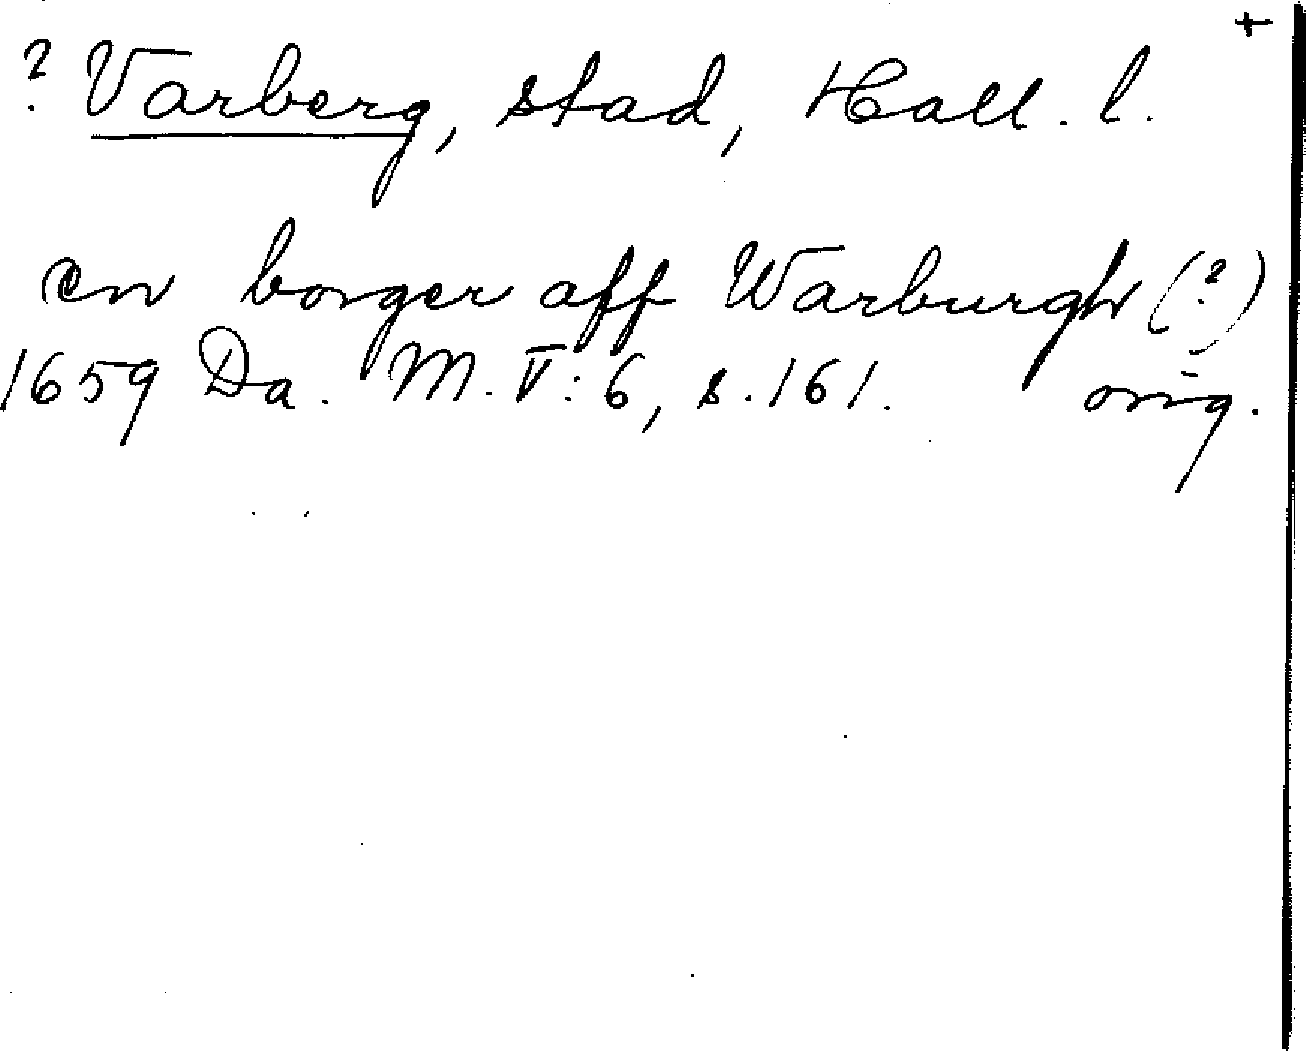 +
? Varberg, stad, Hall. l.
en borger aff Warburgh (?)
1659 Da. M. V: 6, s. 161. orig.